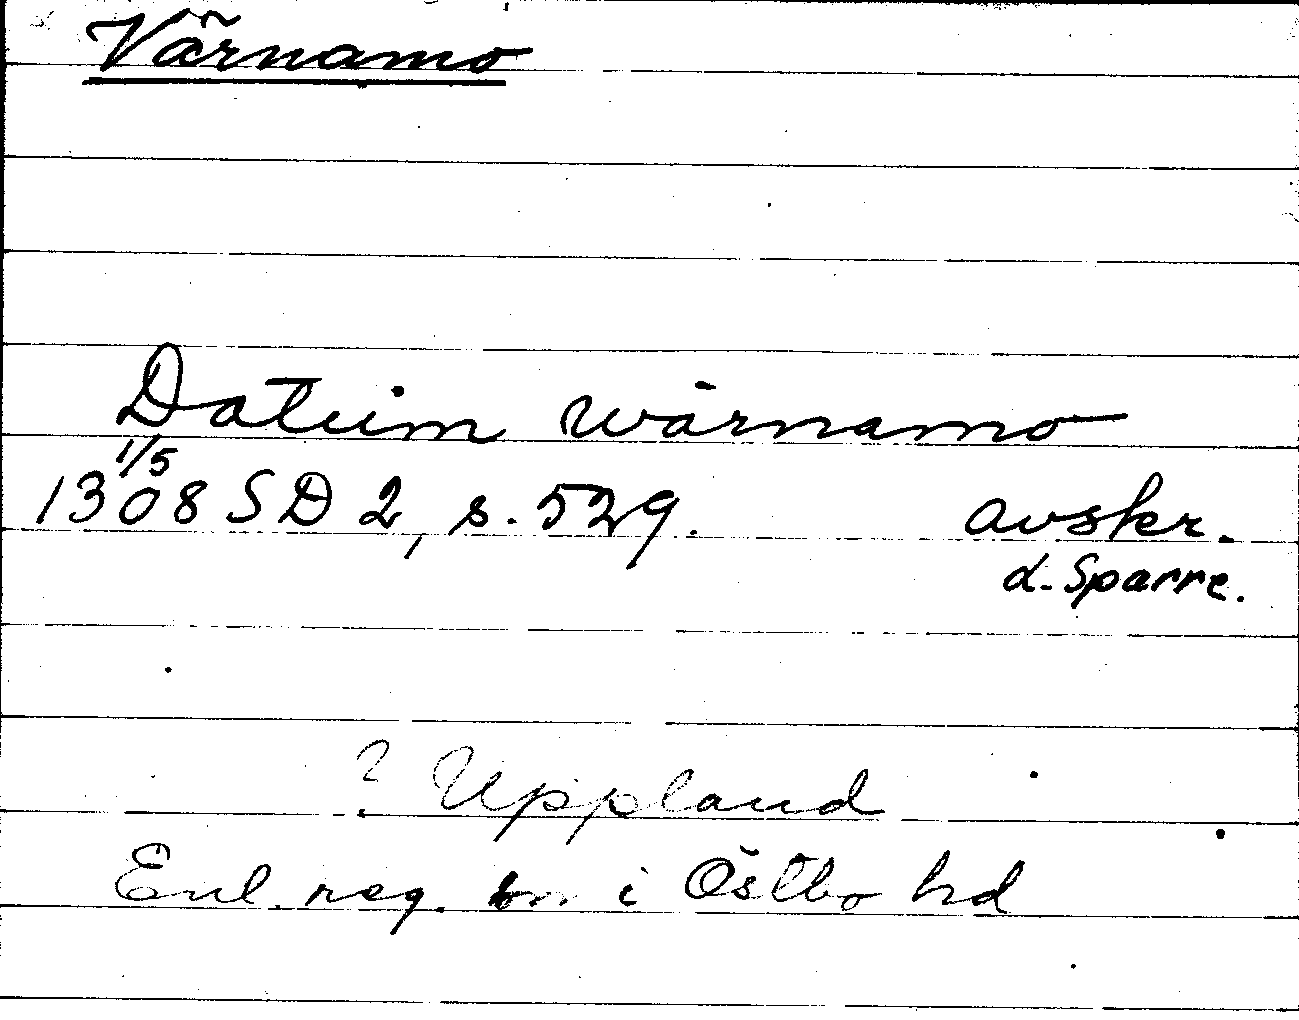 Värnamo
Datum wärnamo
1/5
1308 SD 2, s. 529. avskr.
d. Sparre.
? Uppland
Enl. reg. i Östbo hd